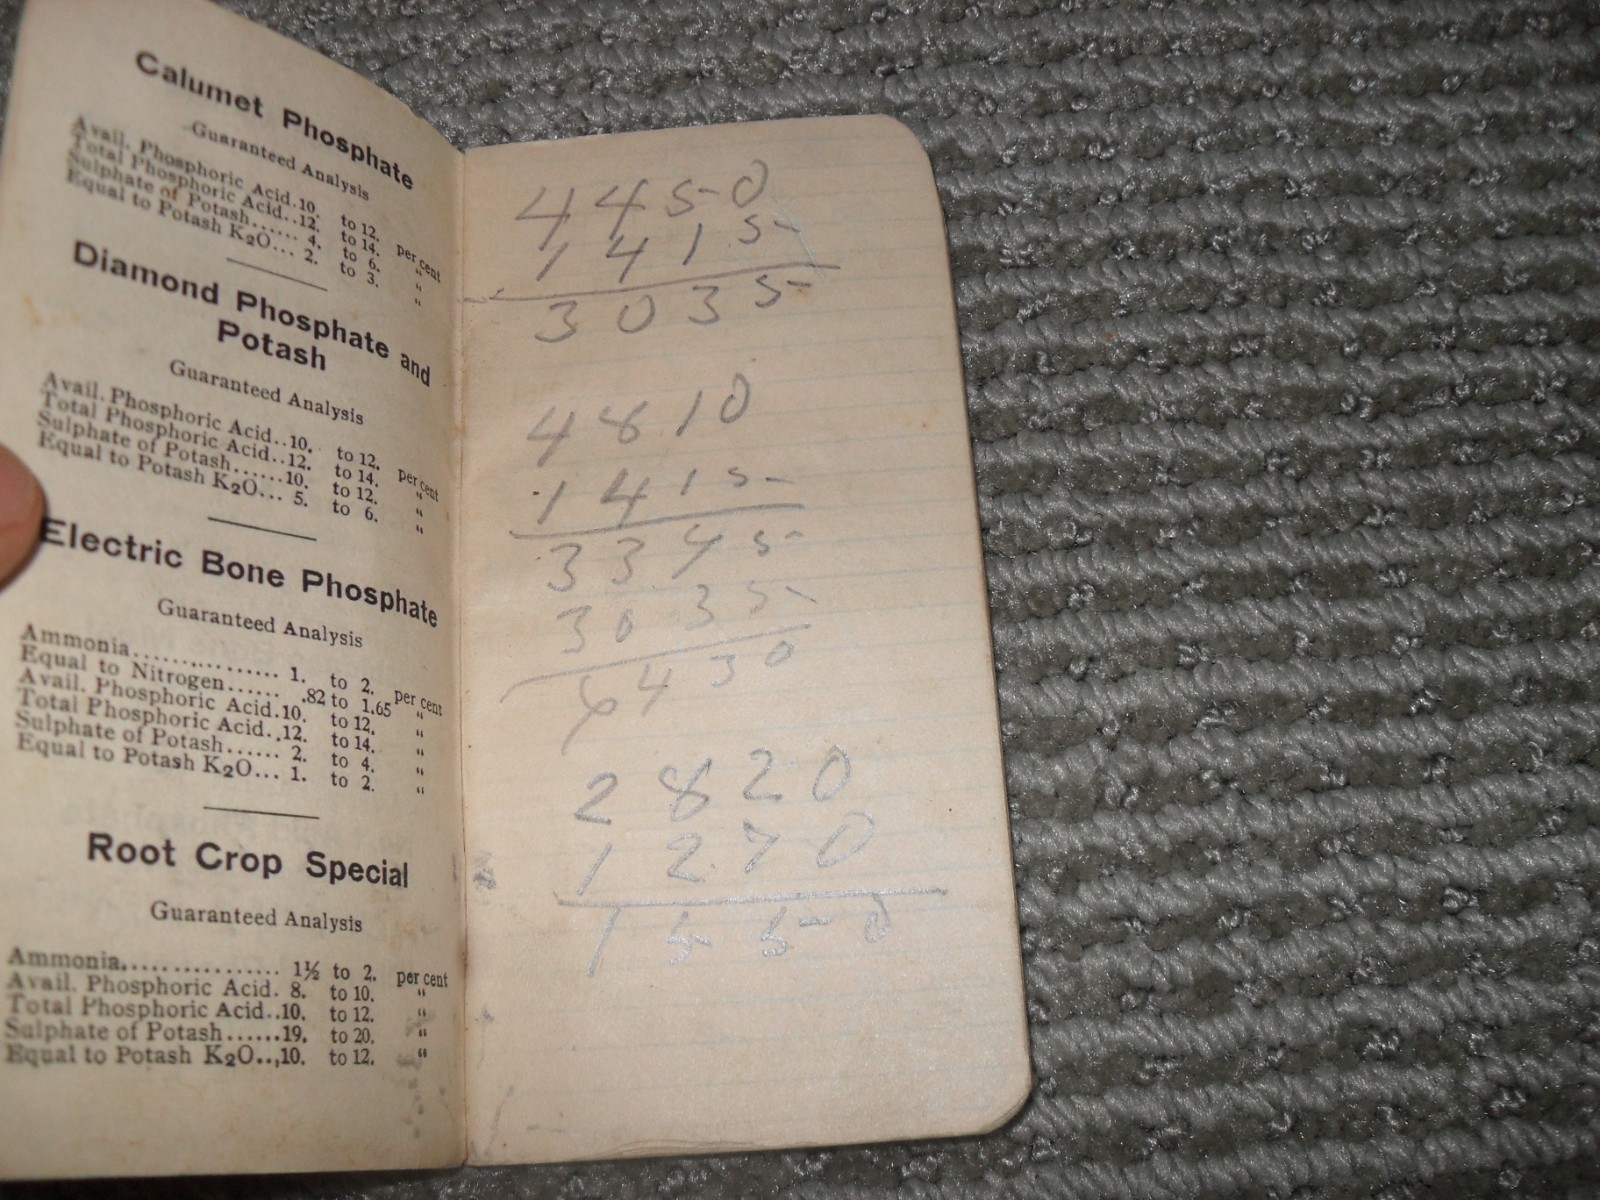 Calumet Phosphate
Guaranteed Analysis
Avail. Phosphoric Acid.10. to 12. per cent
Total Phosphoric Acid..12. to 14. "
Sulphate of Potash....... 4. to 6. "
Equal to Potash K2O... 2. to 3. "
Diamond Phosphate and
Potash
Guaranteed Analysis
Avail. Phosphoric Acid..10. to 12. per cent
Total Phosphoric Acid..12. to 14. "
Sulphate of Potash......10. to 12. "
Equal to Potash K2O... 5. to 6. "
Electric Bone Phosphate
Guaranteed Analysis
Ammonia.................. 1. to 2. per cent
Equal to Nitrogen...... .82 to 1.65 "
Avail. Phosphoric Acid.10. to 12. "
Total Phosphoric Acid..12. to 14. "
Sulphate of Potash...... 2. to 4. "
Equal to Potash K2O... 1. to 2. "
Root Crop Special
Guaranteed Analysis
Ammonia.................. 1½ to 2. per cent
Avail. Phosphoric Acid. 8. to 10. "
Total Phosphoric Acid..10. to 12. "
Sulphate of Potash......19. to 20. "
Equal to Potash K2O..,10. to 12. "
4450
1415
3035
4810
1415
3345
3035
6430
2820
1270
1550